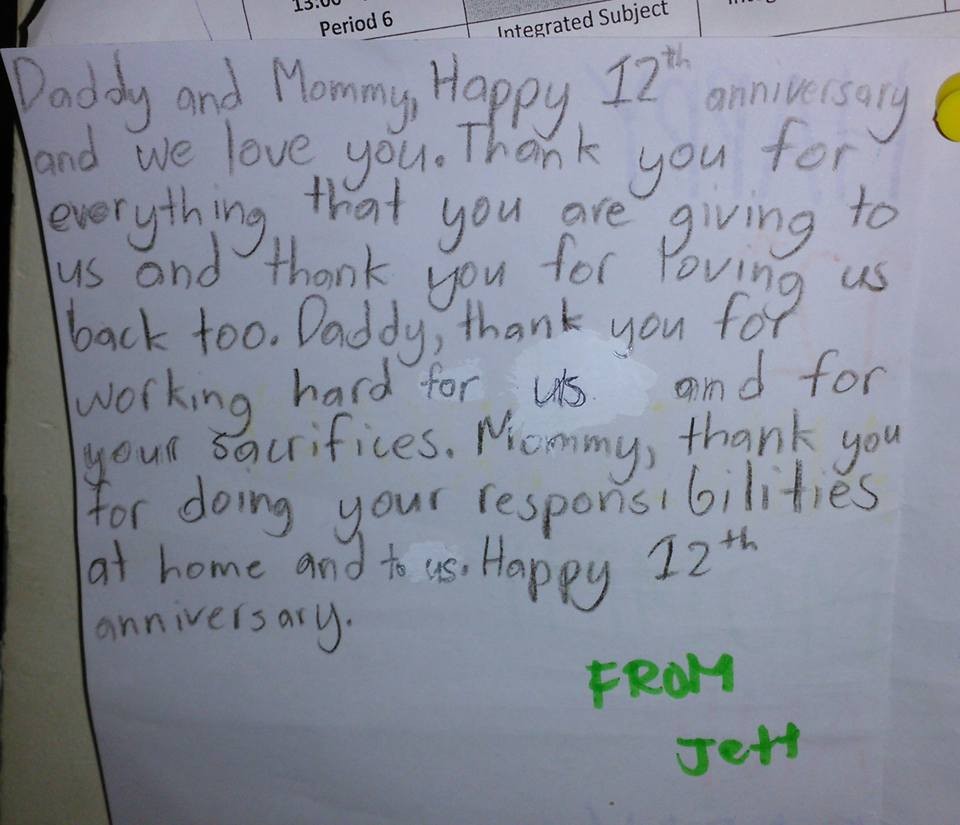 13:00
Period 6
Integrated Subject
Daddy and Mommy, Happy 12th anniversary
and we love you. Thank you for
everything that you are giving to
us and thank you for loving us
back too. Daddy, thank you for
working hard for us and for
your sacrifices. Mommy, thank you
for doing your responsibilities
at home and to us. Happy 12th
anniversary.
FROM
Jett